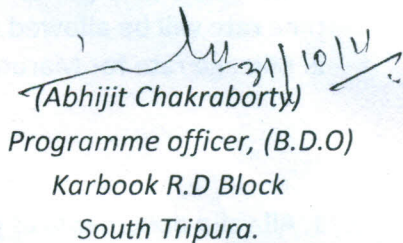 31/10/11
(Abhijit Chakraborty)
Programme officer, (B.D.O)
Karbook R.D Block
South Tripura.